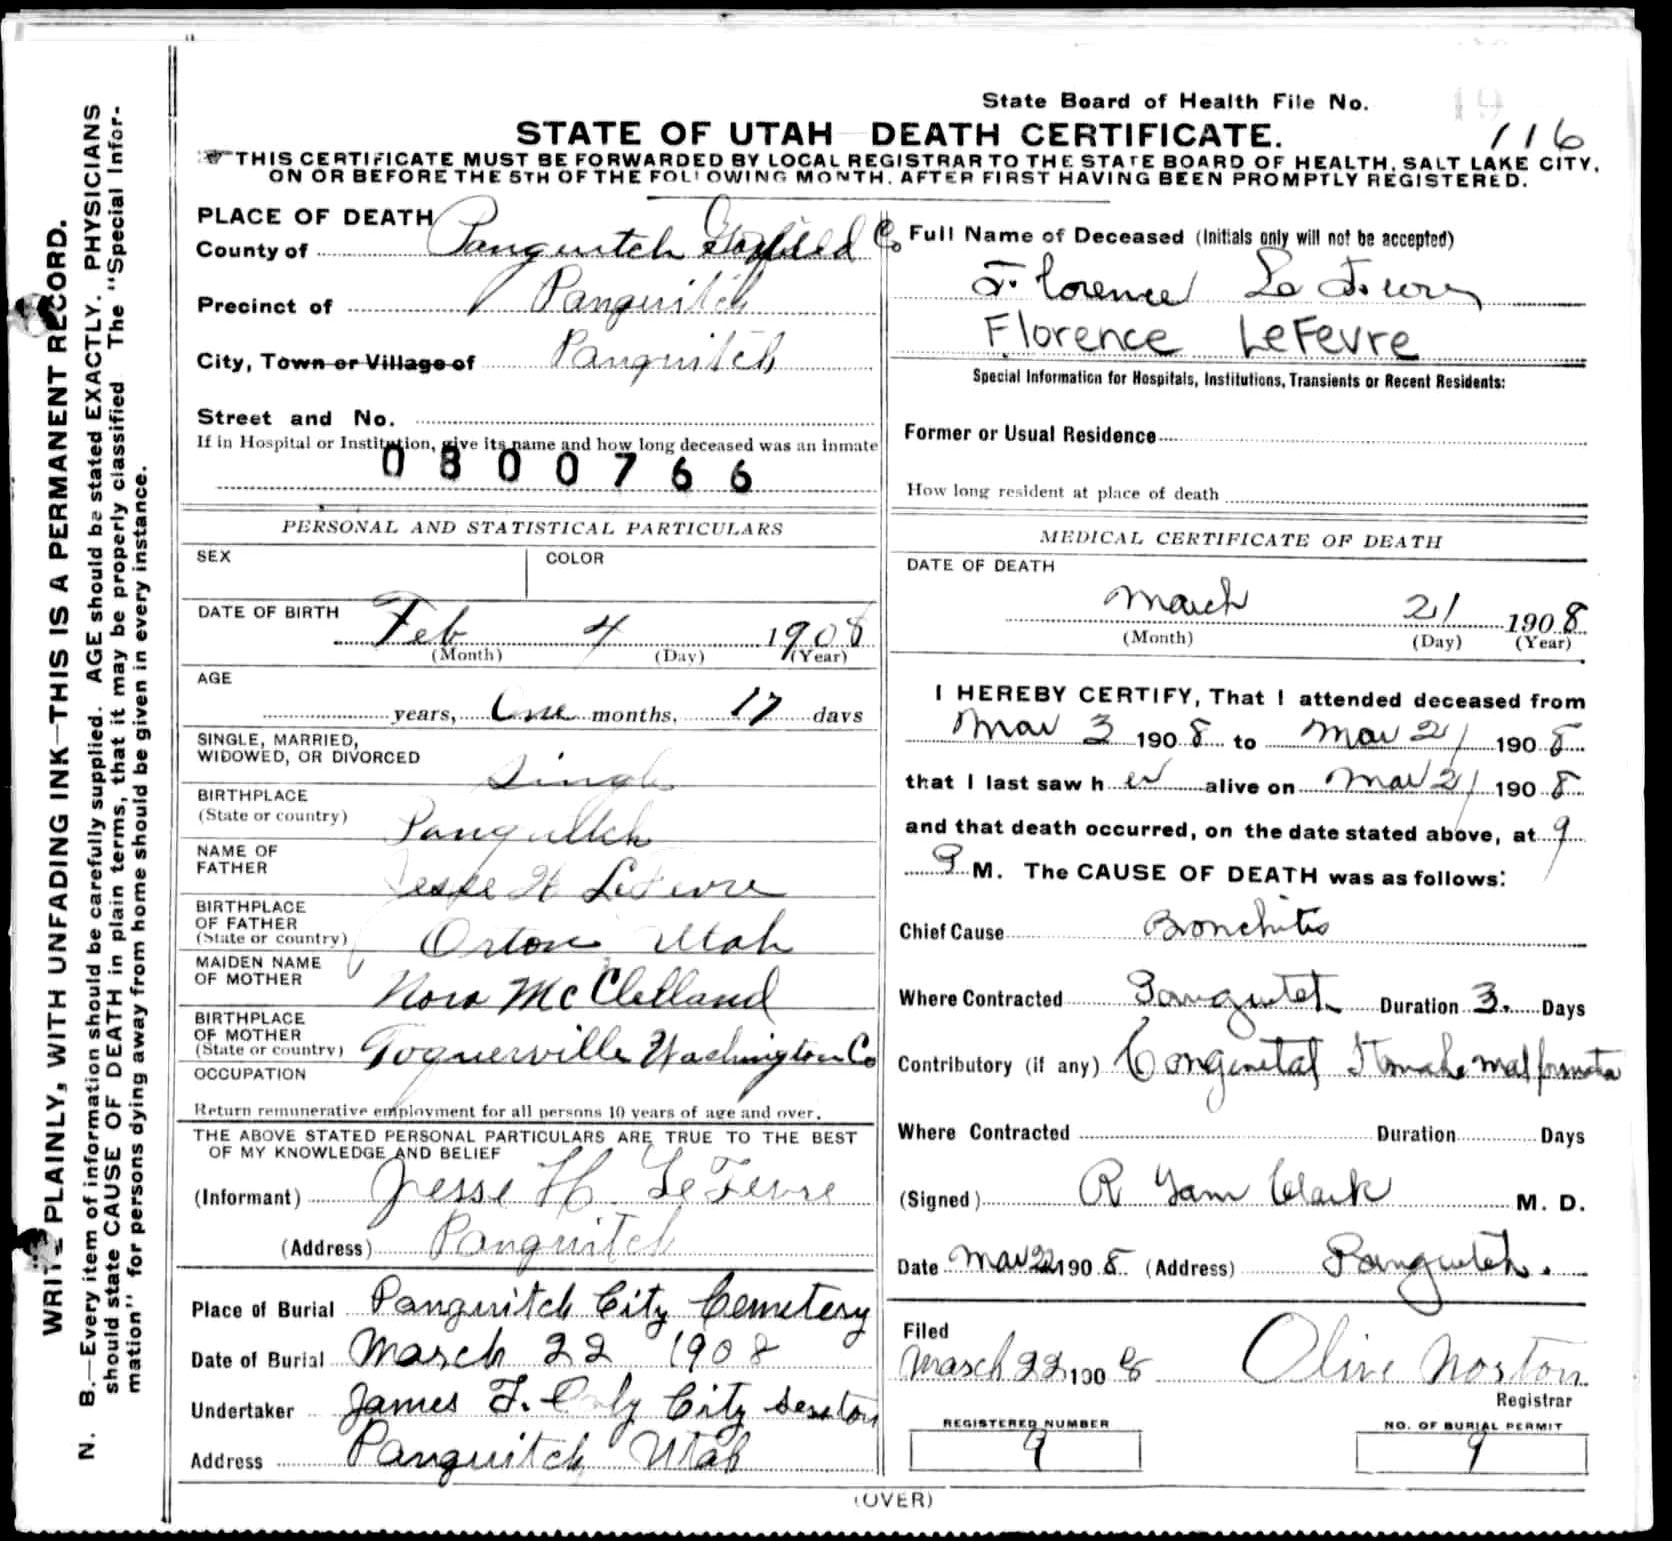 State Board of Health File No.
116
STATE OF UTAH DEATH CERTIFICATE.
THIS CERTIFICATE MUST BE FORWARDED BY LOCAL REGISTRAR TO THE STATE BOARD OF HEALTH, SALT LAKE CITY,
ON OR BEFORE THE 5TH OF THE FOLLOWING MONTH, AFTER FIRST HAVING BEEN PROMPTLY REGISTERED.
WRITE PLAINLY, WITH UNFADING INK—THIS IS A PERMANENT RECORD.
N. B.—Every item of information should be carefully supplied. AGE should be stated EXACTLY. PHYSICIANS
should state CAUSE OF DEATH in plain terms, that it may be properly classified The "Special Infor-
mation" for persons dying away from home should be given in every instance.
PLACE OF DEATH
County of Panguitch Garfield Co
Precinct of Panguitch
City, Town or Village of Panguitch
Street and No.
If in Hospital or Institution, give its name and how long deceased was an inmate
0800766
PERSONAL AND STATISTICAL PARTICULARS
SEX COLOR
DATE OF BIRTH
Feb 4 1908
(Month) (Day) (Year)
AGE
years, One months, 17 days
SINGLE, MARRIED,
WIDOWED, OR DIVORCED Single
BIRTHPLACE
(State or country) Panguitch
NAME OF
FATHER Jesse H LeFevre
BIRTHPLACE
OF FATHER
(State or country) Orton Utah
MAIDEN NAME
OF MOTHER Nora McClelland
BIRTHPLACE
OF MOTHER
(State or country) Toquerville Washington Co
OCCUPATION
Return remunerative employment for all persons 10 years of age and over.
THE ABOVE STATED PERSONAL PARTICULARS ARE TRUE TO THE BEST
OF MY KNOWLEDGE AND BELIEF
(Informant) Jesse H. LeFevre
(Address) Panguitch
Place of Burial Panguitch City Cemetery
Date of Burial March 22 1908
Undertaker James F. City Sexton
Address Panguitch Utah
Full Name of Deceased (Initials only will not be accepted)
Florence Le Fevre
Florence LeFevre
Special Information for Hospitals, Institutions, Transients or Recent Residents:
Former or Usual Residence
How long resident at place of death
MEDICAL CERTIFICATE OF DEATH
DATE OF DEATH
March 21 1908
(Month) (Day) (Year)
I HEREBY CERTIFY, That I attended deceased from
Mar 3 1908 to Mar 21 1908
that I last saw her alive on Mar 21 1908
and that death occurred, on the date stated above, at 9
P M. The CAUSE OF DEATH was as follows:
Chief Cause Bronchitis
Where Contracted Panguitch Duration 3. Days
Contributory (if any) Congenital
Where Contracted Duration Days
(Signed) R Clark M. D.
Date Mar 22 1908 (Address) Panguitch.
Filed
March 22 1908 Olive Norton
Registrar
REGISTERED NUMBER
9
NO. OF BURIAL PERMIT
9
(OVER)